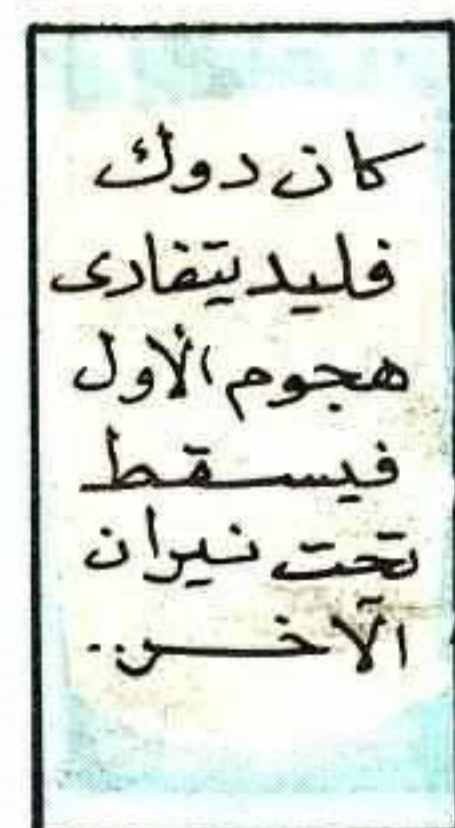 كان دوك
فليد يتفادى
هجوم الأول
فيسقط
تحت نيران
الآخر..